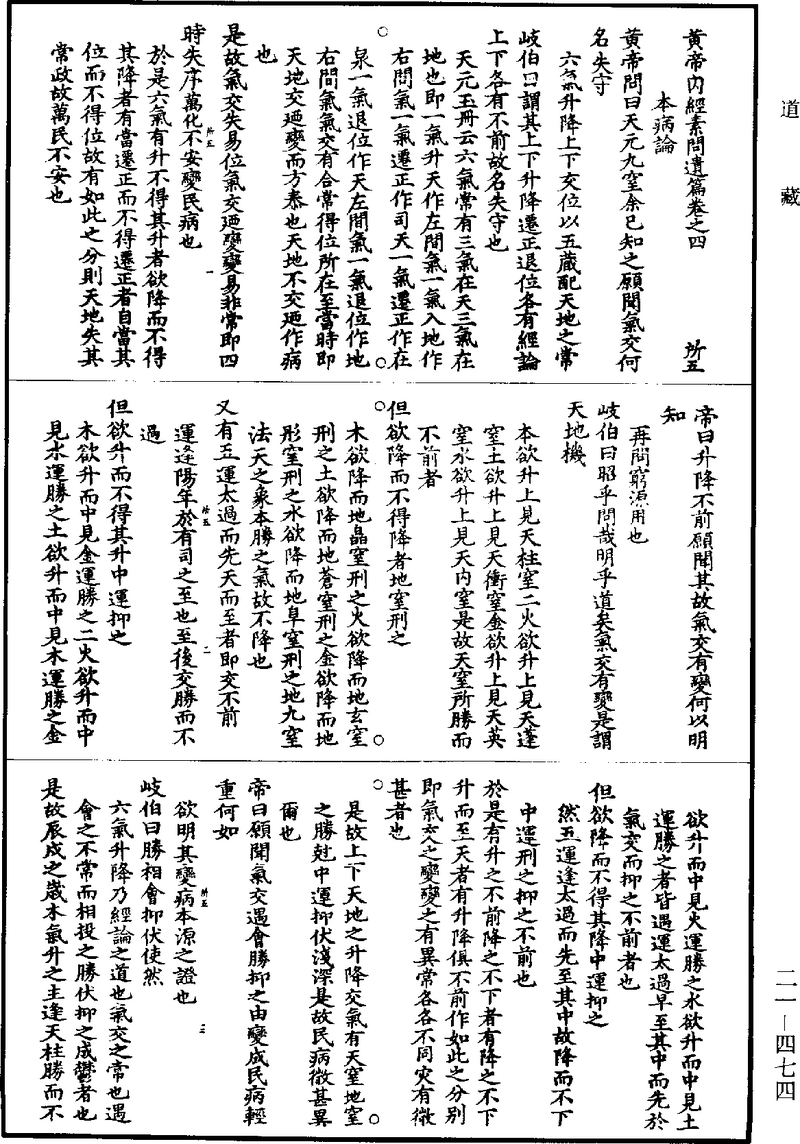 道藏
黃帝內經素問遺篇卷之四　　　　　所五
本病論
黃帝問曰天元九窒余已知之願聞氣交何
名失守
六氣升降上下交位以五藏配天地之常
岐伯曰謂其上下升降遷正退位各有經論
上下各有不前故名失守也
天元玉冊云六氣常有三氣在天三氣在
地也即一氣升天作左間氣一氣入地作
右間氣一氣遷正作司天一氣遷正作在
泉一氣退位作天左間氣一氣退位作地
右間氣氣交有合常得位所在至當時即
天地交迺變而方泰也天地不交迺作病
也
是故氣交失易位氣交迺變變易非常即四
時失序萬化不安變民病也
於是六氣有升不得其升者欲降而不得
其降者有當遷正而不得遷正者自當其
位而不得位故有如此之分則天地失其
常政故萬民不安也
所五　一
帝曰升降不前願聞其故氣交有變何以明
知
再問窮源用也
岐伯曰昭乎問哉明乎道矣氣交有變是謂
天地機
本欲升上見天柱窒二火欲升上見天蓬
窒土欲升上見天衝窒金欲升上見天英
窒水欲升上見天內窒是故天窒所勝而
不前者
但欲降而不得降者地窒刑之
木欲降而地皛窒刑之火欲降而地玄窒
刑之土欲降而地蒼窒刑之金欲降而地
彤窒刑之水欲降而地阜窒刑之地九窒
法天之象本勝之氣故不降也
又有五運太過而先天而至者即交不前
運逢陽年於有司之至也至後交勝而不
過
但欲升而不得其升中運抑之
木欲升而中見金運勝之二火欲升而中
見水運勝之土欲升而中見木運勝之金
所五　二
欲升而中見火運勝之水欲升而中見土
運勝之者皆遇運太過早至其中而先於
氣交而抑之不前者也
但欲降而不得其降中運抑之
然五運逢太過而先至其中故降而不下
中運刑之抑之不前也
於是有升之不前降之不下者有降之不下
升而至天者有升降俱不前作如此之分別
即氣交之變變之有異常各各不同灾有微
甚者也
是故上下天地之升降交氣有天窒地窒
之勝尅中運抑伏淺深是故民病微甚異
爾也
帝曰願聞氣交遇會勝抑之由變成民病輕
重何如
欲明其變病本源之證也
岐伯曰勝相會抑伏使然
六氣升降乃經論之道也氣交之常也遇
會之不常而相投之勝伏抑之成鬱者也
是故辰戌之歲木氣升之主逢天柱勝而不
所五　三
二一—四七四